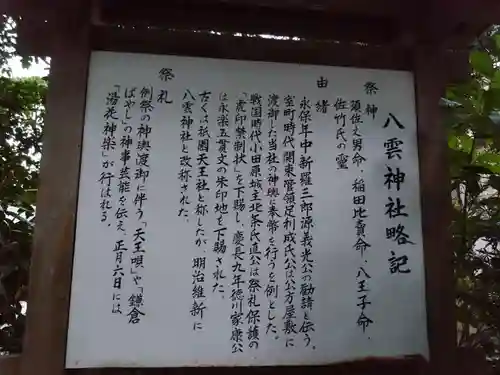 八雲神社略記
祭神
須佐之男命．稲田比売命．八王子命．
佐竹氏の霊
由緒
永保年中新羅三郎源義光公の勧請と伝う．
室町時代関東管領足利成氏公は公方屋敷に
渡御した当社の神輿に奉幣を行うを例とした。
戦国時代小田原城主北条氏直公は祭礼保護の
「虎印禁制状」を下賜し、慶長九年徳川家康公
は永楽五貫文の朱印地を下賜された。
古くは祇園天王社と称したが、明治維新に
八雲神社と改称された。
祭礼
例祭の神輿渡御に伴う「天王唄」や「鎌倉
ばやし」の神事芸能を伝え、正月六日には
「湯花神楽」が行はれる．